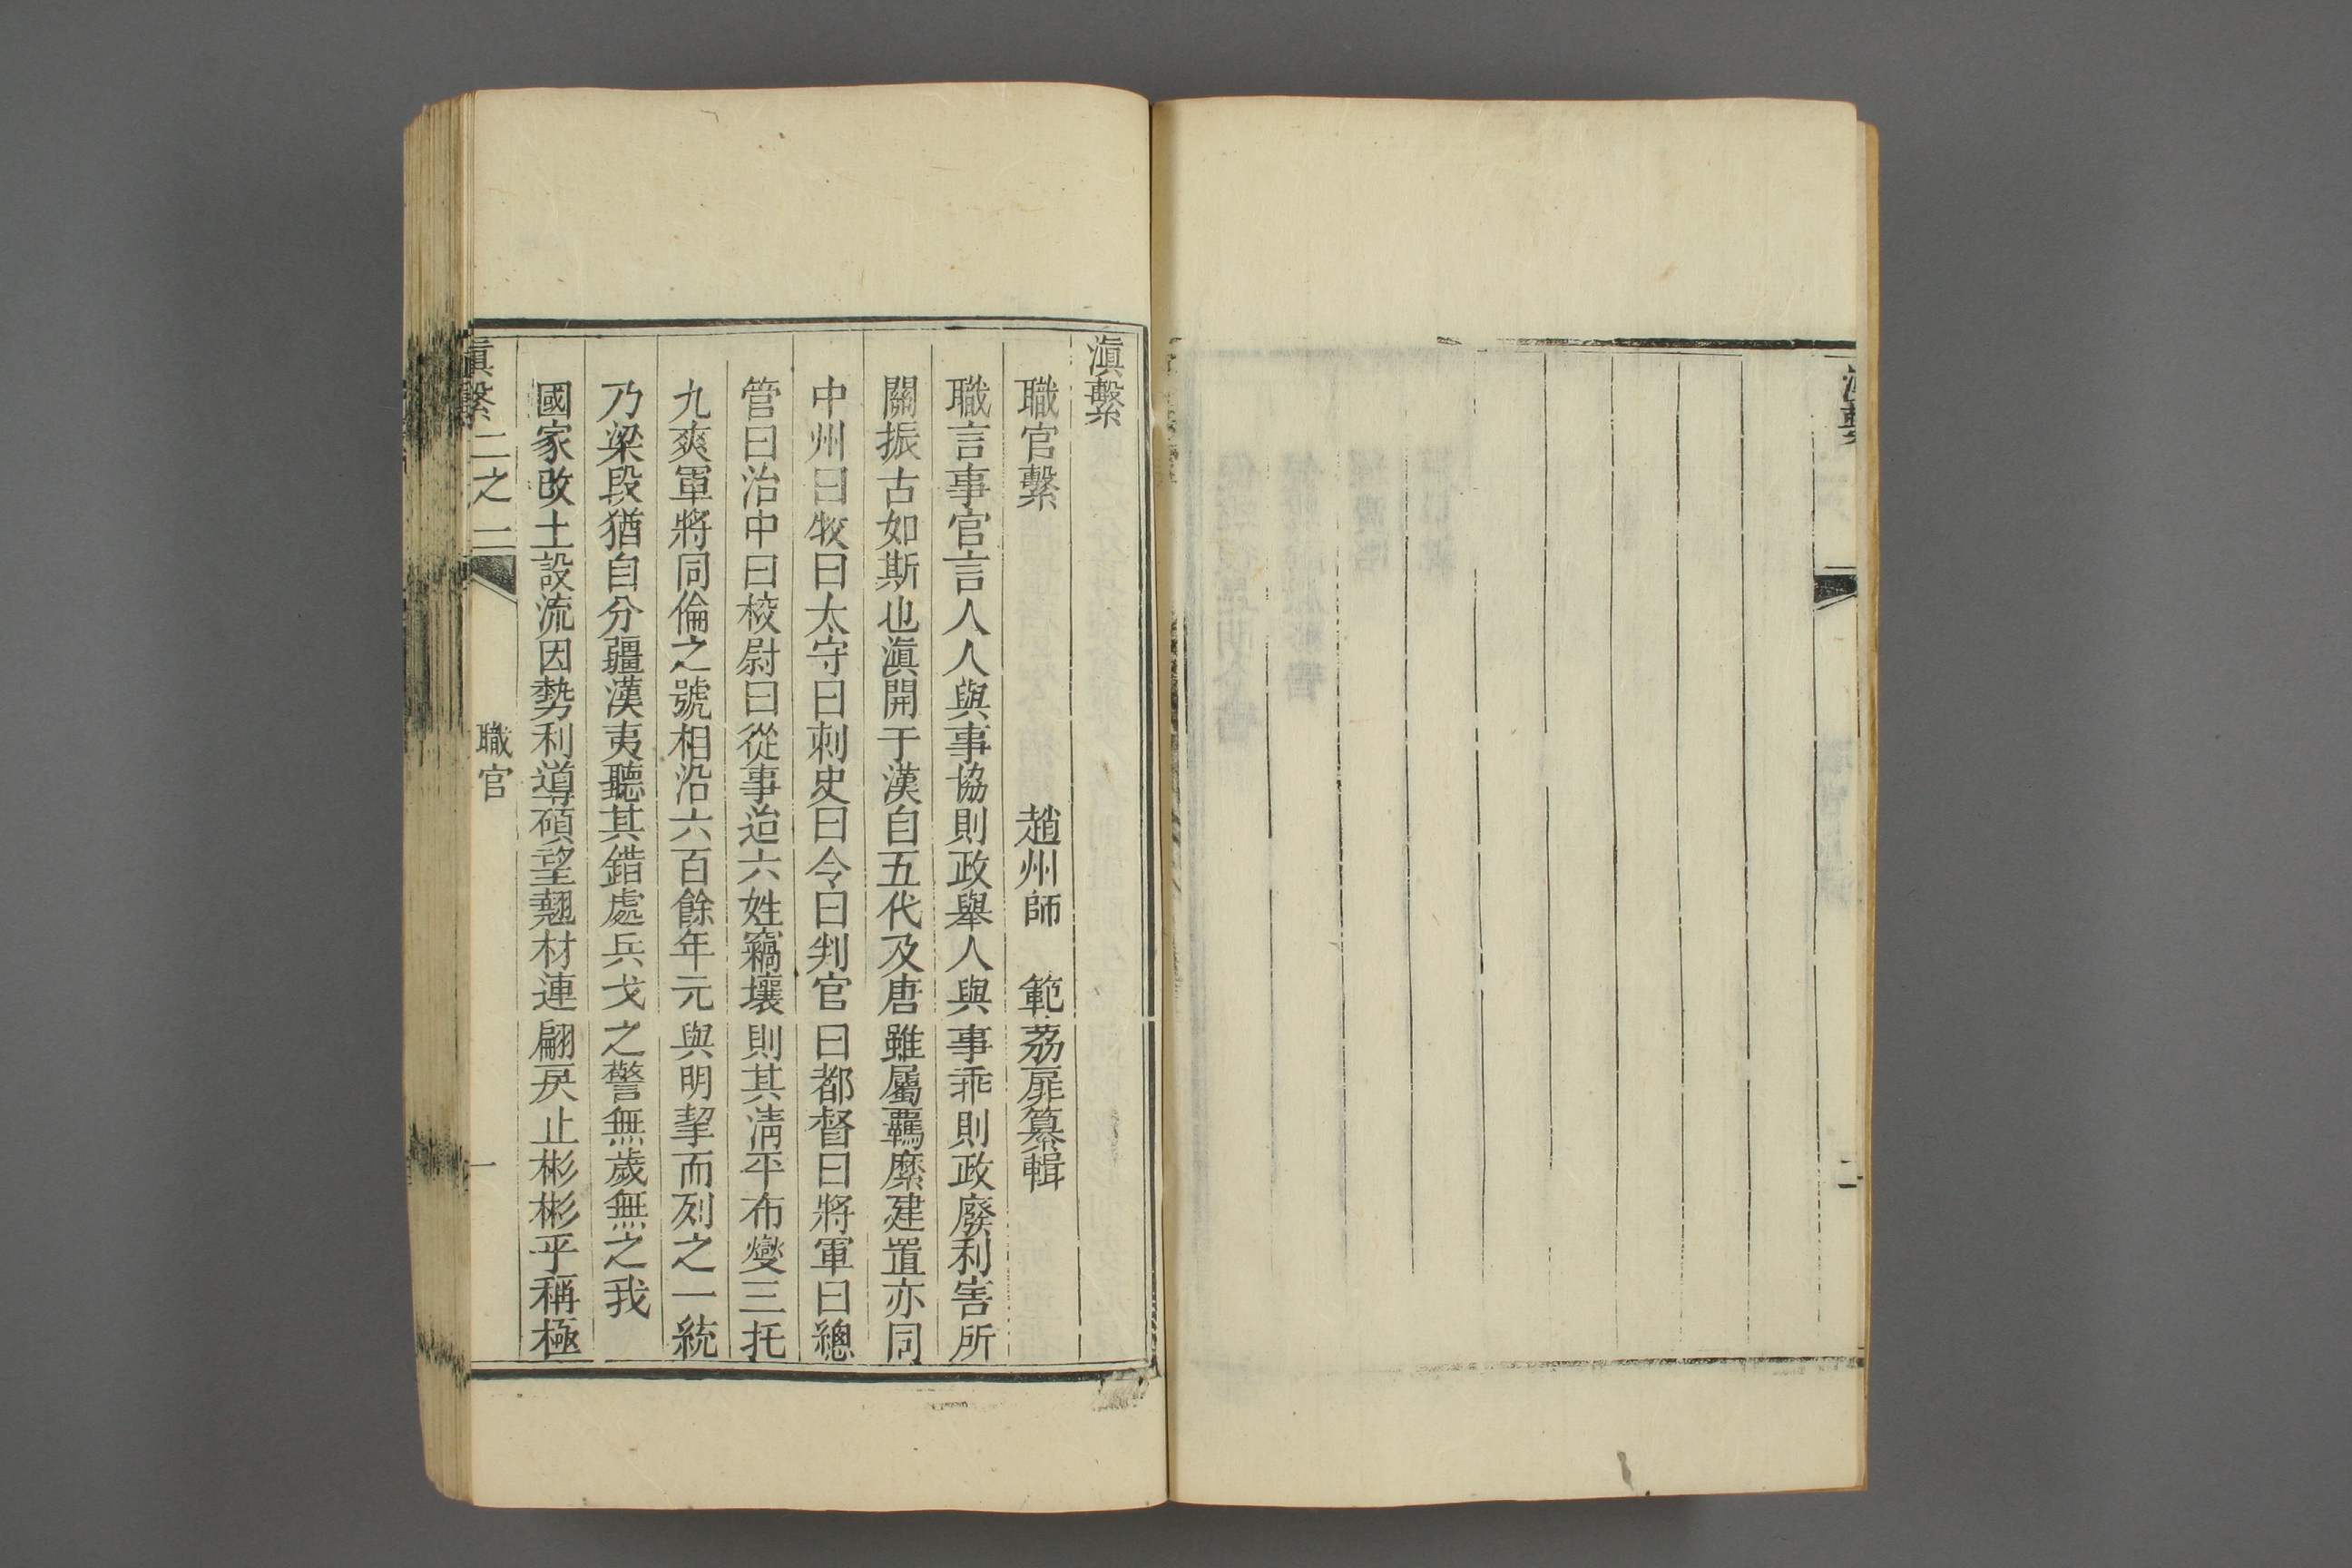 滇繫
二
滇繫
職官繫
趙州師　範荔扉纂輯
職言事官言人人與事協則政舉人與事乖則政廢利害所
關振古如斯也滇開于漢自五代及唐雖屬羈縻建置亦同
中州曰牧曰太守曰刺史曰令曰判官曰都督曰將軍曰總
管曰治中曰校尉曰從事迨六姓竊壤則其淸平布燮三托
九爽軍將同倫之號相沿六百餘年元與明挈而列之一統
乃梁段猶自分疆漢夷聽其錯處兵戈之警無歲無之我
國家改土設流因勢利導碩望翹材連翩戾止彬彬乎稱極
滇繫 二之一 職官 一